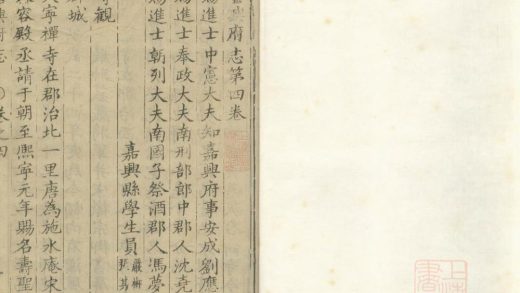 府志第四卷
賜進士中憲大夫知嘉興府事安成劉應
賜進士奉政大夫南刑部郎中郡人沈堯
賜進士朝列大夫南國子祭酒郡人馮夢
嘉興縣學生員
觀
城
寧禪寺在郡治北一里唐為施水庵宋
容殿丞請于朝至熙寧元年賜名壽聖
興府志 卷之四